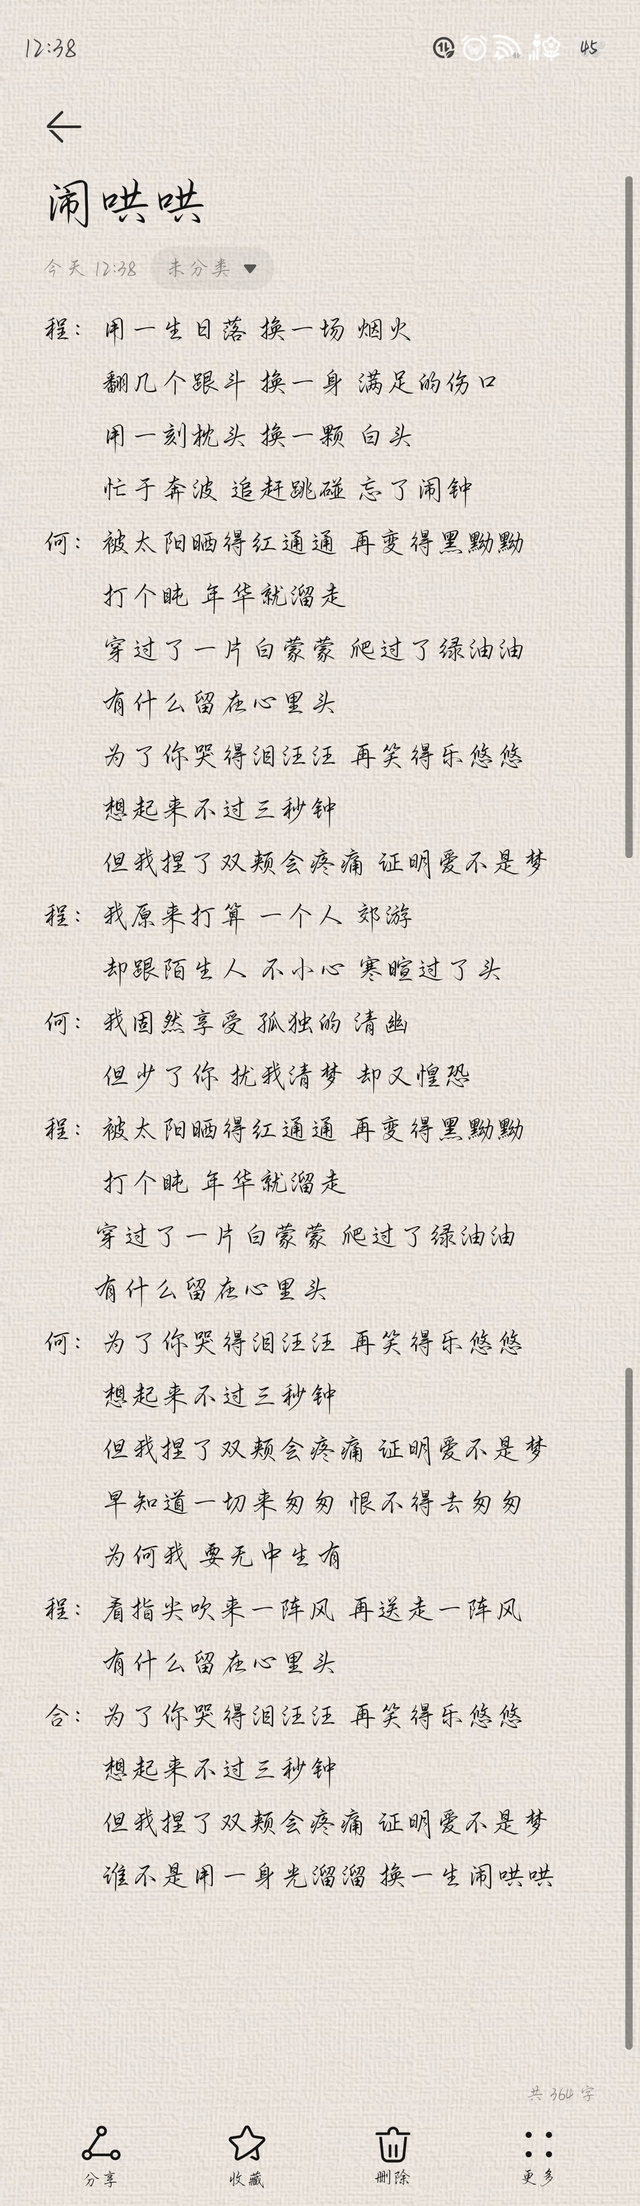 12:38
45
闹哄哄
今天 12:38 未分类
程：用一生日落 换一场 烟火
翻几个跟斗 换一身 满足的伤口
用一刻枕头 换一颗 白头
忙于奔波 追赶跳碰 忘了闹钟
何：被太阳晒得红通通 再变得黑黝黝
打个盹 年华就溜走
穿过了一片白蒙蒙 爬过了绿油油
有什么留在心里头
为了你哭得泪汪汪 再笑得乐悠悠
想起来不过三秒钟
但我捏了双颊会疼痛 证明爱不是梦
程：我原来打算 一个人 郊游
却跟陌生人 不小心 寒暄过了头
何：我固然享受 孤独的 清幽
但少了你 扰我清梦 却又惶恐
程：被太阳晒得红通通 再变得黑黝黝
打个盹 年华就溜走
穿过了一片白蒙蒙 爬过了绿油油
有什么留在心里头
何：为了你哭得泪汪汪 再笑得乐悠悠
想起来不过三秒钟
但我捏了双颊会疼痛 证明爱不是梦
早知道一切来匆匆 恨不得去匆匆
为何我 要无中生有
程：看指尖吹来一阵风 再送走一阵风
有什么留在心里头
合：为了你哭得泪汪汪 再笑得乐悠悠
想起来不过三秒钟
但我捏了双颊会疼痛 证明爱不是梦
谁不是用一身光溜溜 换一生闹哄哄
共 364 字
分享 收藏 删除 更多